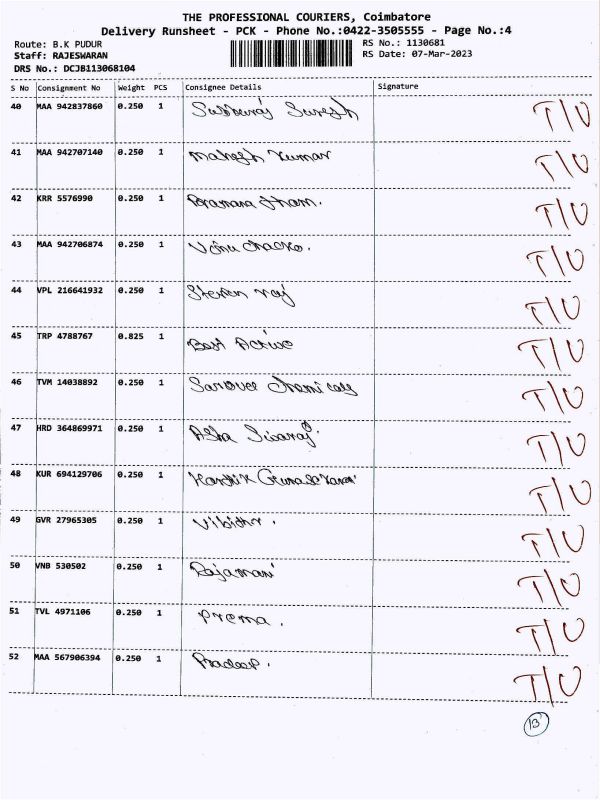 THE PROFESSIONAL COURIERS, Coimbatore
Delivery Runsheet - PCK - Phone No.:0422-3505555 - Page No.:4
Route: B.K PUDUR RS No.: 1130681
Staff: RAJESWARAN RS Date: 07-Mar-2023
DRS No.: DCJB113068104
S No Consignment No Weight PCS Consignee Details Signature
40 MAA 942837860 0.250 1 Subburaj Suresh T/U
41 MAA 942707140 0.250 1 Mahesh Kumar T/U
42 KRR 5576990 0.250 1 T/U
43 MAA 942706874 0.250 1 Vinu Chacko. T/U
44 VPL 216641932 0.250 1 Steven raj T/U
45 TRP 4788767 0.825 1 Best Active T/U
46 TVM 14038892 0.250 1 Chemicals T/U
47 HRD 364869971 0.250 1 Asha Sivaraj T/U
48 KUR 694129706 0.250 1 Karthik Gunasekaran T/U
49 GVR 27965305 0.250 1 T/U
50 VNB 530502 0.250 1 Rajamani T/U
51 TVL 4971106 0.250 1 Prema. T/U
52 MAA 567906394 0.250 1 Pradeep. T/U
13